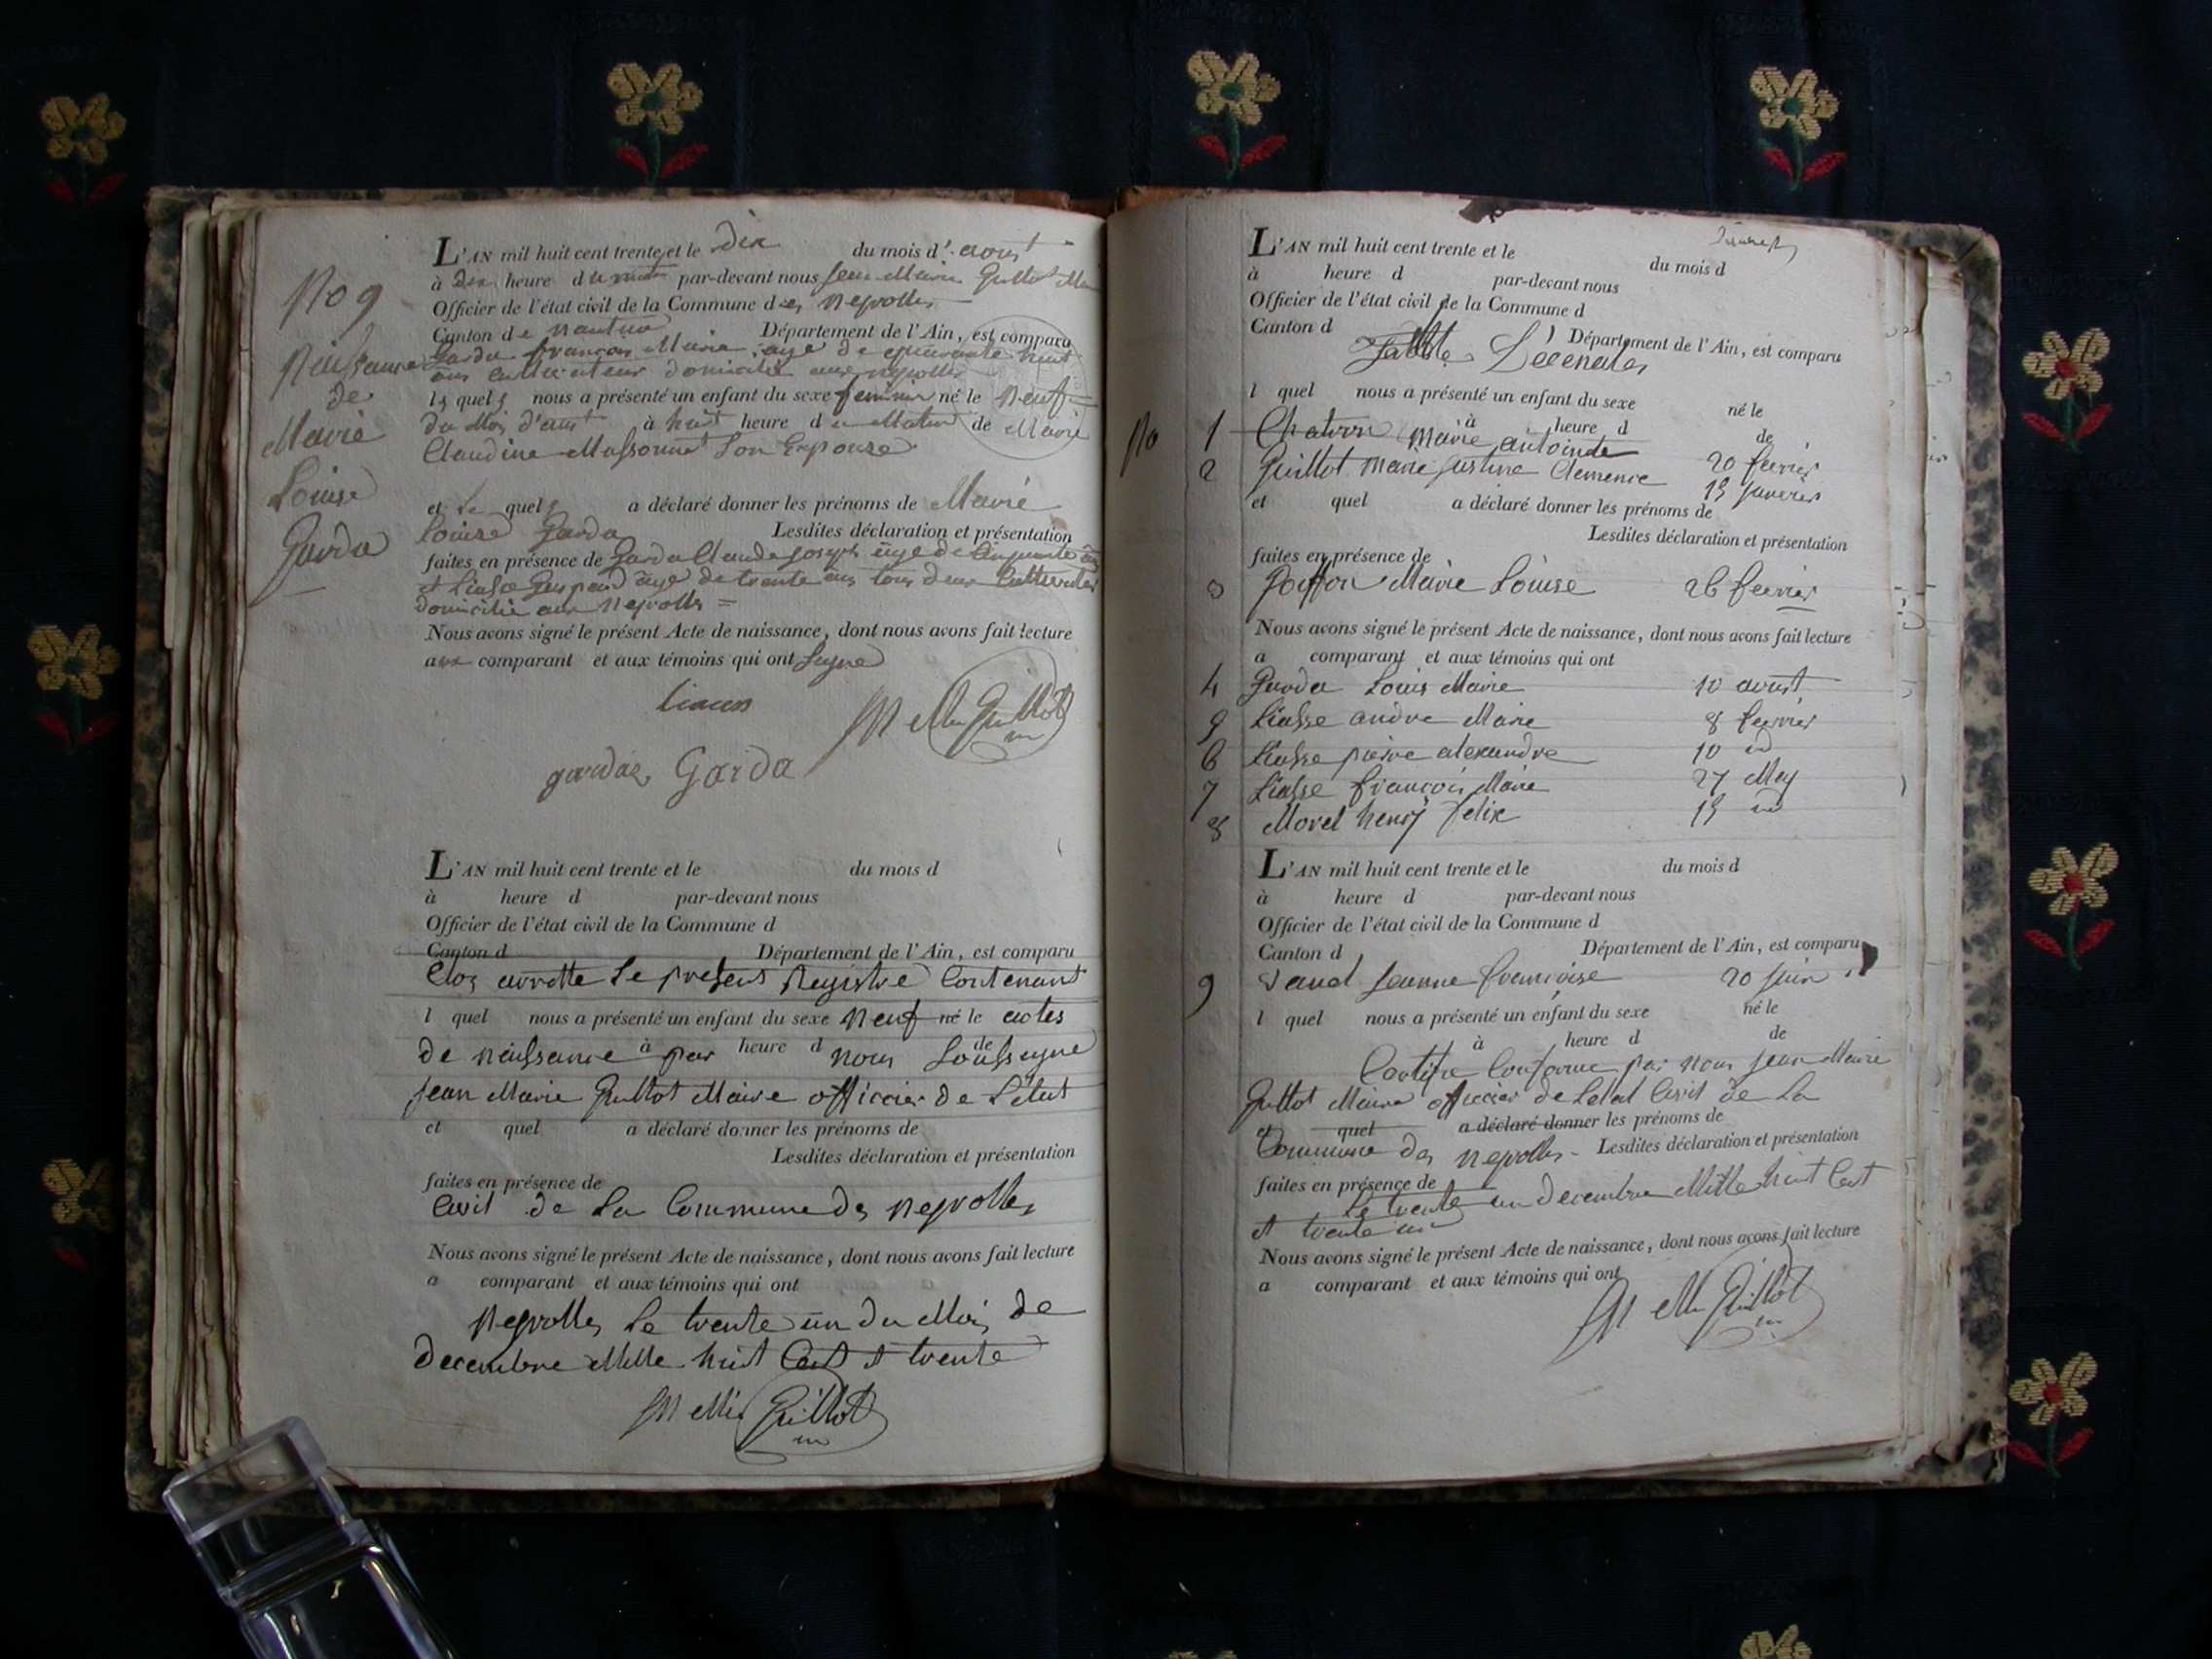 No 9
Naissance
de
Marie
Louise
Garda
L'AN mil huit cent trente et le dix du mois d'aoust
à dix heure du matin par-devant nous Jean Marie Guillot
Officier de l'état civil de la Commune des neyrolles
Canton de nantua Département de l'Ain, est comparu
Garda françois Marie age de quarante huit
ans cultivateur domicilié aux neyrolles
lequel nous a présenté un enfant du sexe feminin né le neuf
du Mois d'aoust à huit heure du Matin de Marie
Claudine Massonnet Son Epouse
et le quel a déclaré donner les prénoms de Marie
Louise Garda Lesdites déclaration et présentation
faites en présence de Garda Claude Joseph age de Cinquante ans
et Liasse Gaspard age de trente ans tous deux Cultivateurs
domicilié aux neyrolles =
Nous avons signé le présent Acte de naissance, dont nous avons fait lecture
aux comparant et aux témoins qui ont Signe
J M Guillot
Garda
L'AN mil huit cent trente et le du mois d
à heure d par-devant nous
Officier de l'état civil de la Commune d
Canton d Département de l'Ain, est comparu
Clos arrette le present Registre Contenant
l quel nous a présenté un enfant du sexe neuf né le actes
de naissance à par heure d nous de Soussigne
Jean Marie Guillot Maire officier de L'état
et quel a déclaré donner les prénoms de
Lesdites déclaration et présentation
faites en présence de
Civil de La Commune des neyrolles
Nous avons signé le présent Acte de naissance, dont nous avons fait lecture
a comparant et aux témoins qui ont
Neyrolles le trente un du Mois de
decembre Mille huit Cent et trente
J M Guillot
L'AN mil huit cent trente et le du mois d
à heure d par-devant nous
Officier de l'état civil de la Commune d
Canton d Département de l'Ain, est comparu
Table
l quel nous a présenté un enfant du sexe né le
à heure d de
No 1 Chatron Marie antoinette 20 fevrier
2 Guillot Marie Justine Clemence 15 Janvier
et quel a déclaré donner les prénoms de
Lesdites déclaration et présentation
faites en présence de
3 Marie Louise 26 fevrier
Nous avons signé le présent Acte de naissance, dont nous avons fait lecture
a comparant et aux témoins qui ont
4 Garda Louis Marie 10 aoust
5 Liasse andre Marie 8 fevrier
6 Liasse pierre alexandre 10 id
7 Liasse françois Marie 27 May
8 Morel henry felix 15 id
L'AN mil huit cent trente et le du mois d
à heure d par-devant nous
Officier de l'état civil de la Commune d
Canton d Département de l'Ain, est comparu
9 Jeanne françoise 20 Juin
l quel nous a présenté un enfant du sexe né le
à heure d de
Certifie Conforme par nous Jean Marie
Guillot Maire officier de Letat Civil de La
et quel a déclaré donner les prénoms de
Commune des neyrolles - Lesdites déclaration et présentation
faites en présence de
Le trente un decembre Mille huit Cent
et trente un
Nous avons signé le présent Acte de naissance, dont nous avons fait lecture
a comparant et aux témoins qui ont
J M Guillot